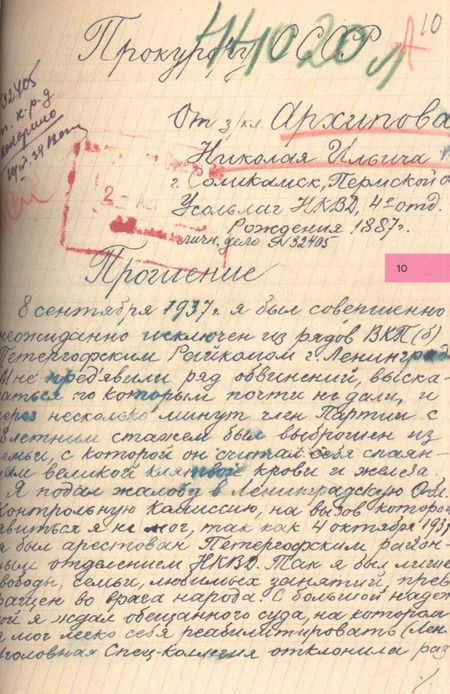 Прокурору СССР
От з/кл. Архипова
Николая Ильича
г. Соликамск, Пермской о
Усольлаг НКВД, 4е отд.
Рождения 1887г.
личн. дело №32405
10
Прошение
8 сентября 1937г. я был совершенно
неожиданно исключен из рядов ВКП(б)
Петергофским Райкомом г. Ленинград
Мне предъявили ряд обвинений, выска-
аться по которым почти не дали, и
ерез несколько минут член Партии с
летним стажем был выброшен из
емьи, с которой он считал себя спаян-
ым великой клятвой крови и железа.
Я подал жалобу в Ленинградскую Обл.
онтрольную комиссию, на вызов которой
явиться я не мог, так как 4 октября 1937
я был арестован Петергофским район-
ным отделением НКВД. Так я был лише
вободы, семьи, любимых занятий, прев
ращен во врага народа. С большой надеж
ой я ждал обещанного суда, на котором
я мог легко себя реабилитировать (Лен.
головная Спец-коллегия отклонила раз